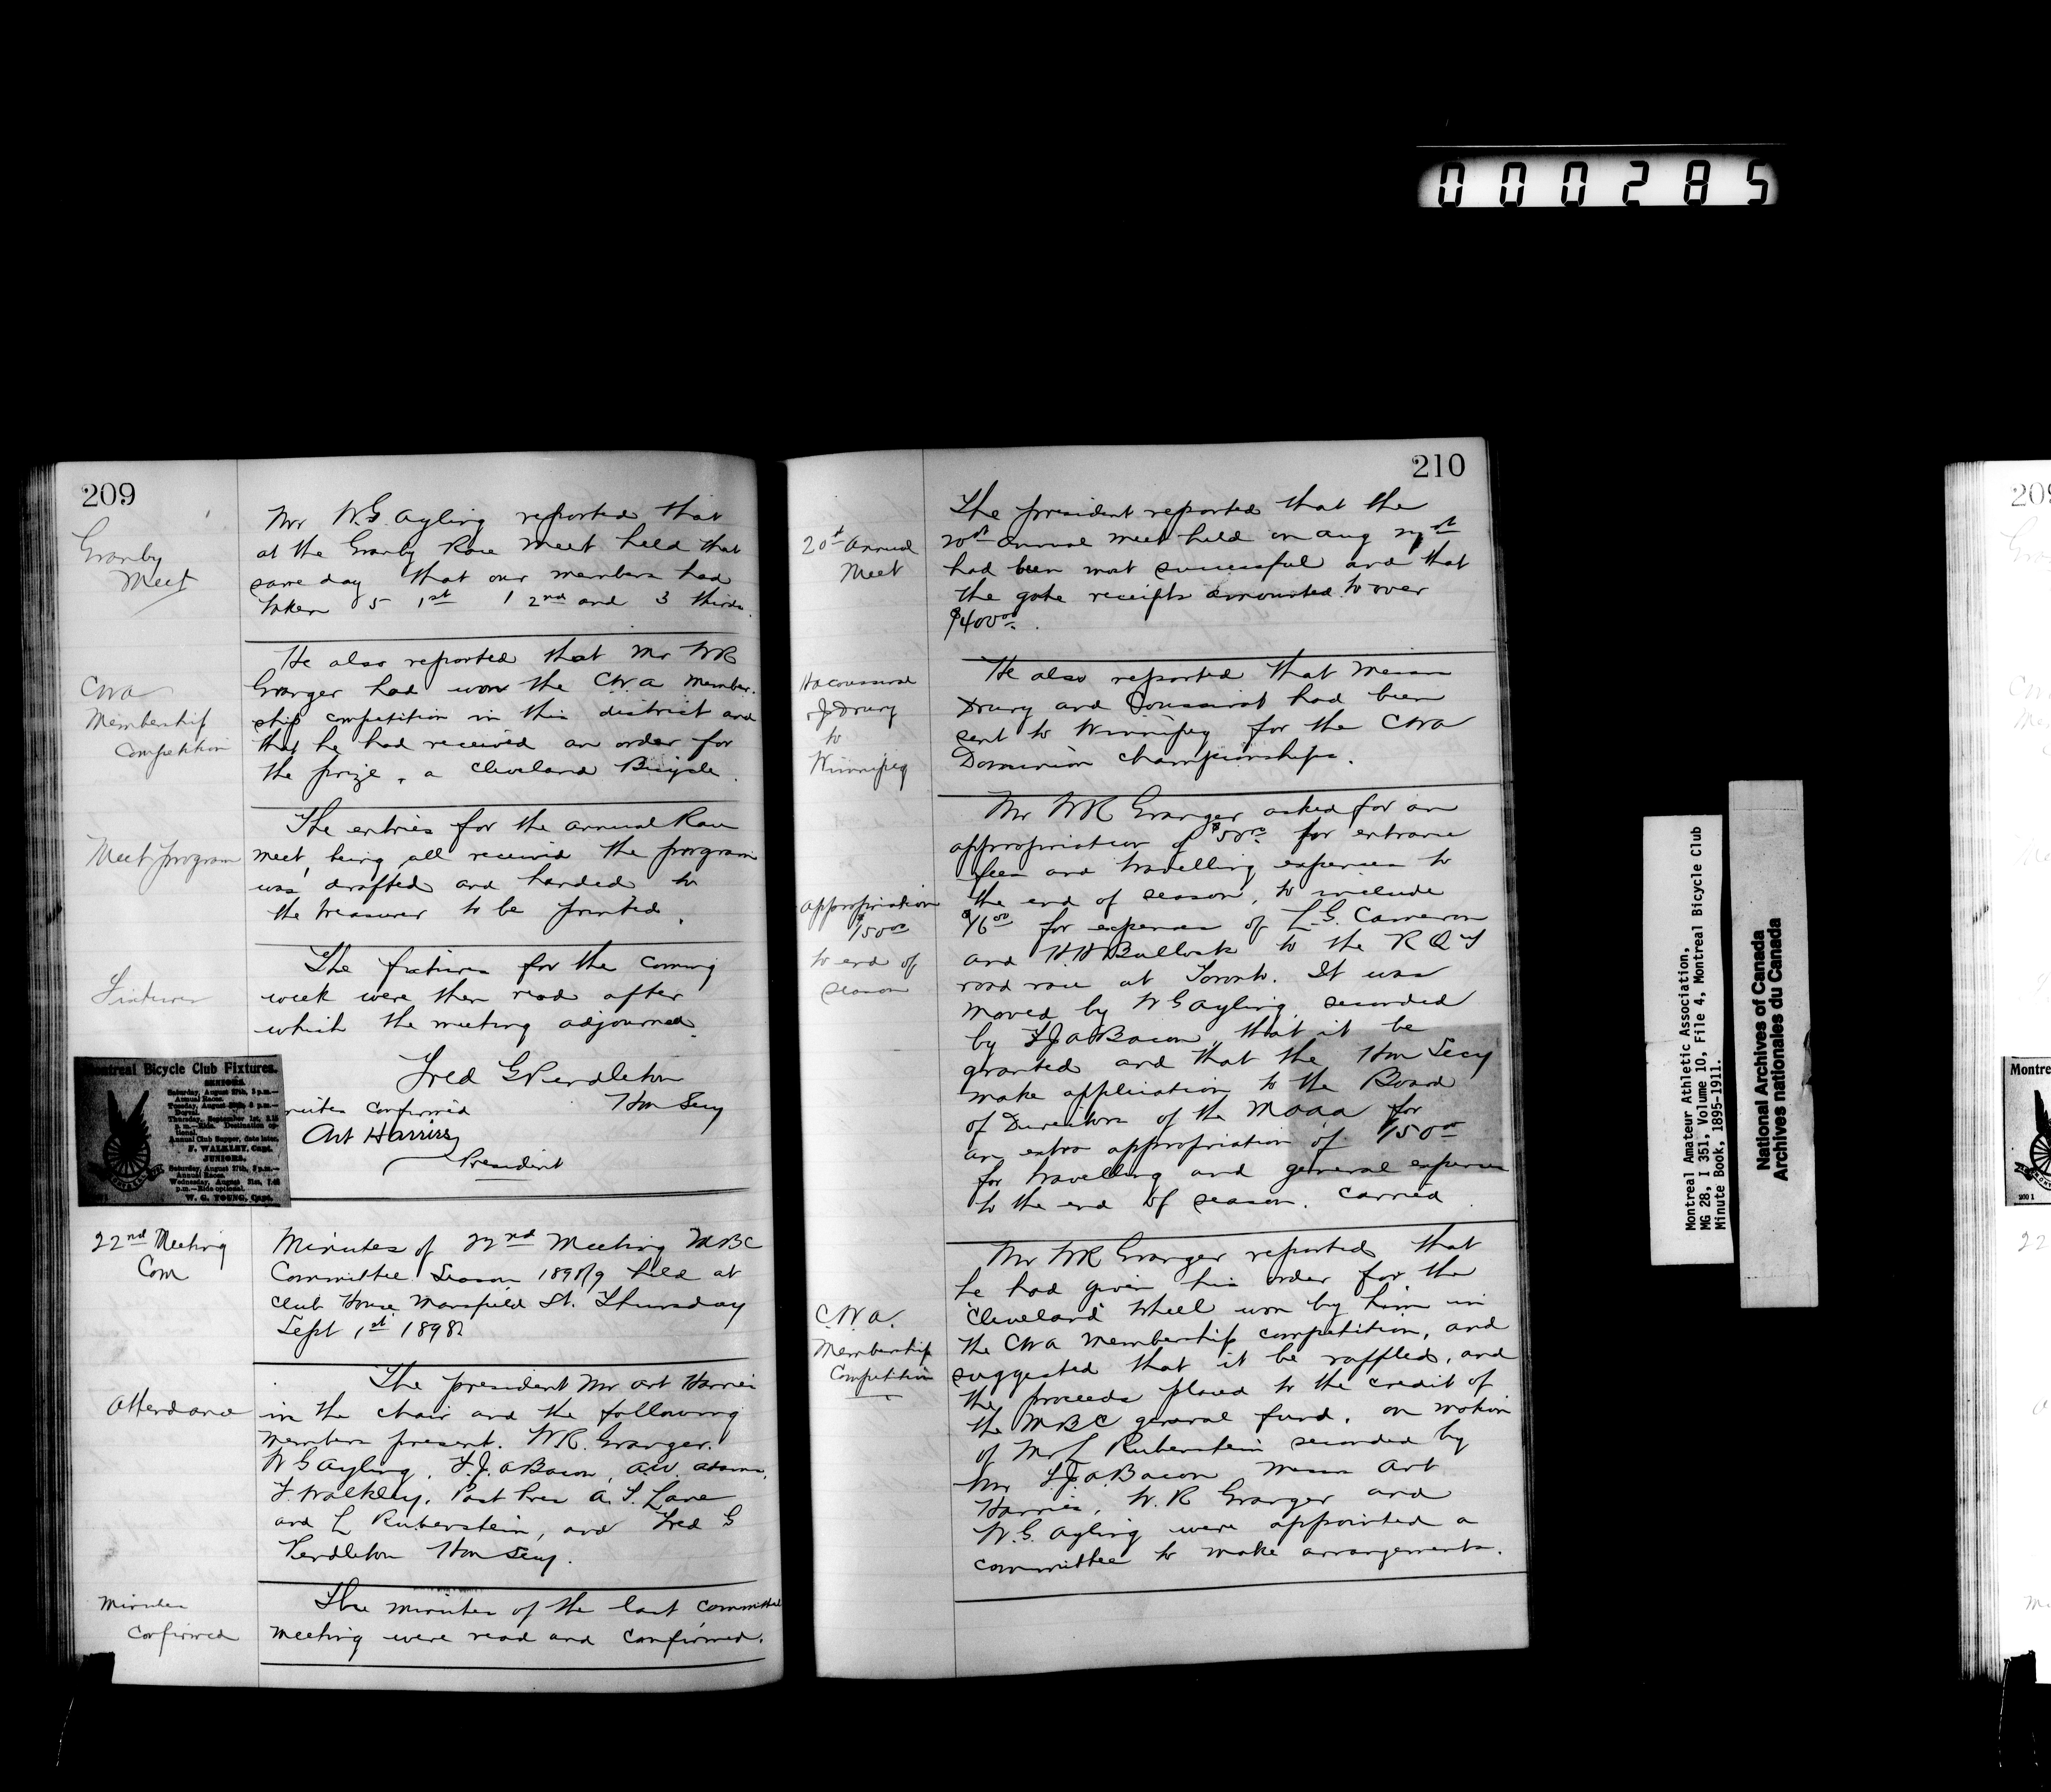 000285
209
Granby
Meet
Mr W.G. Ayling reported that
at the Granby Race Meet held that
same day that our members had
taken 5 1st 1 2nd and 3 thirds.
CWA
Membership
Competition
He also reported that Mr WR
Granger had won the C.W.A member-
ship competition in this district and
that he had received an order for
the prize, a Cleveland Bicycle.
Meet program
The entries for the annual Race
meet, being all received the program
was drafted and handed to
the treasurer to be printed.
Fixtures
The fixtures for the coming
week were then read after
which the meeting adjourned.
Fred G Pendleton
Hon Secy
minutes confirmed
Art Harries
President
Montreal Bicycle Club Fixtures.
SENIORS.
Saturday, August 27th, 3 p.m.—
Annual Races.
Tuesday, August 8 p.m.—
Dorval.
Thursday, September 1st,
p.m.—Ride. Destination op-
tional.
Annual Club Supper, date later.
F. WALKLEY, Capt.
JUNIORS.
Saturday, August 27th, 3 p.m.—
Annual Races.
Wednesday, August 31st, 7.45
p.m.—Ride optional.
W. G. YOUNG, Capt.
22nd Meeting
Com
Minutes of 22nd Meeting MBC
Committee Season 1898/9 held at
Club House Mansfield St. Thursday
Sept 1st 1898
Attendance
The president Mr Art Harries
in the chair and the following
members present. WR. Granger.
W G Ayling, F.J.A Bacon, A.W. Adams,
F. Walkley, Past Pres A.T. Lane
and L Rubenstein, and Fred G
Pendleton Hon Secy.
Minutes
Confirmed
The minutes of the last Committee
meeting were read and Confirmed.
210
20th Annual
Meet
The president reported that the
20th annual meet held on Aug 27th
had been most successful and that
the gate receipts amounted to over
$400.00.
& J Drury
to
Winnipeg
He also reported that Messrs
Drury and Coussirat had been
sent to Winnipeg for the CWA
Dominion Championships.
Appropriation
$150.00
to end of
season
Mr WR Granger asked for an
appropriation of $50.00 for entrance
fees and travelling expenses to
the end of season, to include
$16.00 for expenses of L.G. Cameron
and H H Bullock to the R Q T
road race at Toronto. It was
moved by W G Ayling, seconded
by F J A Bacon, that it be
granted and that the Hon Secy
make application to the Board
of Directors of the MAAA for
an extra appropriation of $150.00
for travelling and general expenses
to the end of season. Carried.
C.W.A.
Membership
Competition
Mr WR Granger reported that
he had given his order for the
"Cleveland" Wheel won by him in
the CWA Membership competition, and
suggested that it be raffled, and
the proceeds placed to the credit of
the MBC general fund. On motion
of Mr L Rubenstein seconded by
Mr F.J.A. Bacon Messrs Art
Harries, W.R Granger and
W.G. Ayling were appointed a
committee to make arrangements.
Montreal Amateur Athletic Association,
MG 28, I 351, Volume 10, File 4, Montreal Bicycle Club
Minute Book, 1895-1911.
National Archives of Canada
Archives nationales du Canada